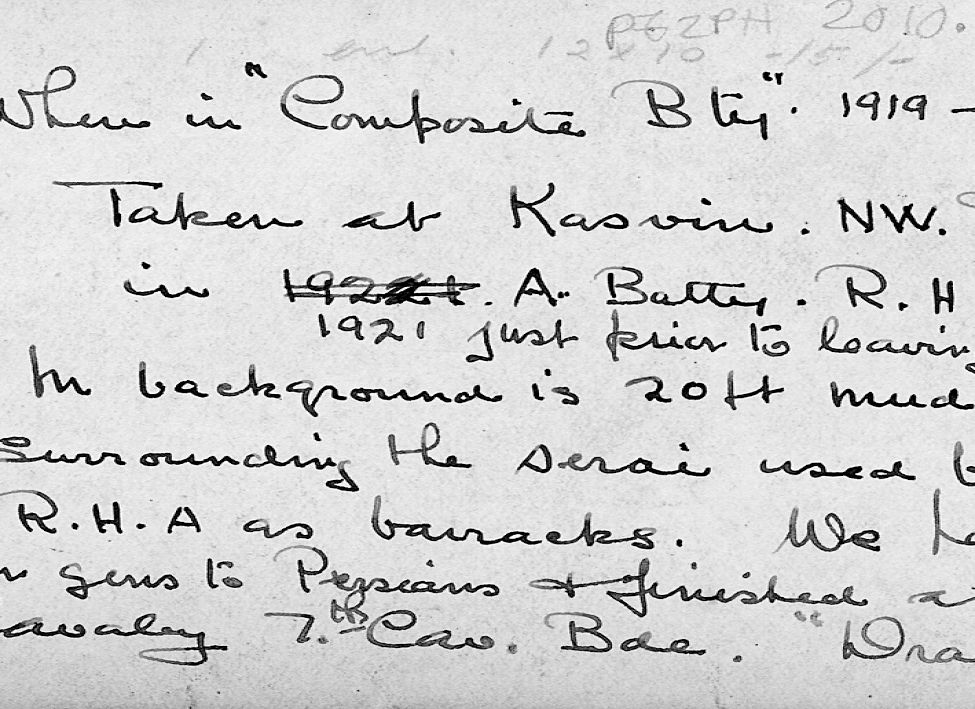 PGZPH 2010.
12 x 10 -15/-
When in "Composite Bty". 1919 -
Taken at Kasvin. NW.
in 1921. A. Battery. R. H
1921 just prior to leaving
In background is 20ft mud
surrounding the serai used b
R.H.A as barracks. We ha
guns to Persians & finished a
avalry 7.th Cav. Bde. "Dra